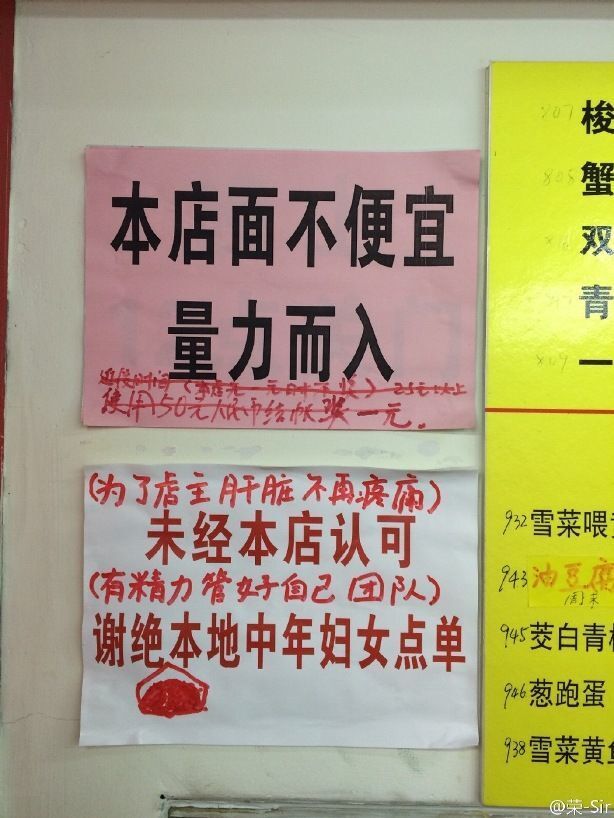 本店面不便宜
量力而入
延长时间
25元以上
使用50元人民币结帐奖一元。
(为了店主肝脏不再疼痛)
未经本店认可
(有精力管好自己团队)
谢绝本地中年妇女点单
807 梭
808 蟹
双
青
809 一
932雪菜喂
943油豆腐
945茭白青
946葱跑蛋
938雪菜黄鱼
@荣-Sir